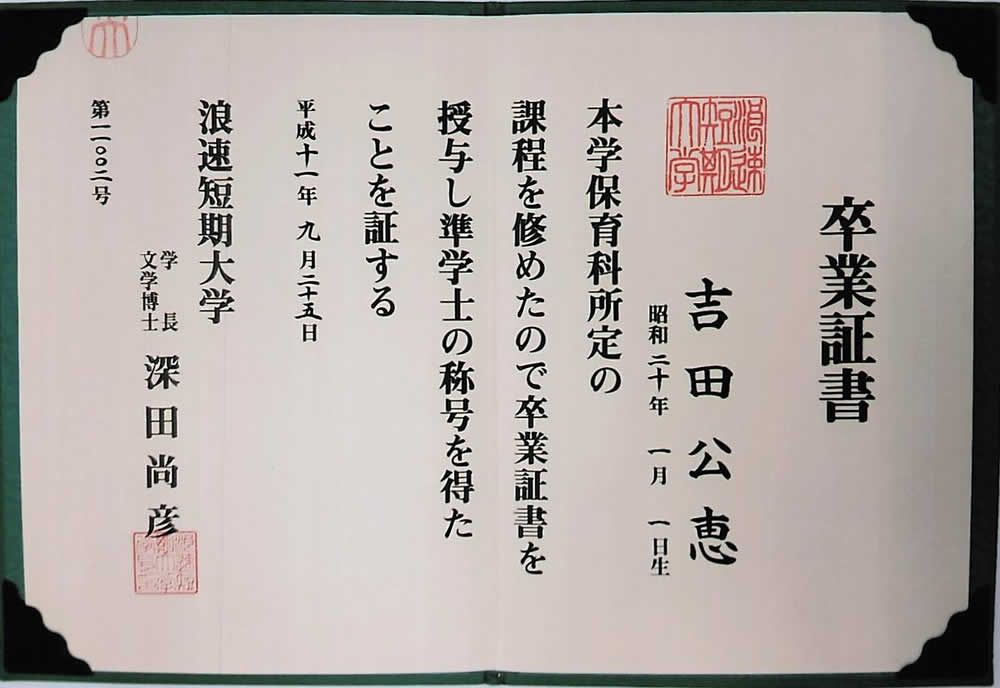 卒業証書
浪速
短期
大学
吉田公恵
昭和二十年 一月 一日生
本学保育科所定の
課程を修めたので卒業証書を
授与し準学士の称号を得た
ことを証する
平成十一年 九月二十五日
浪速短期大学
学長
文学博士
深田尚彦
第一一〇〇二号